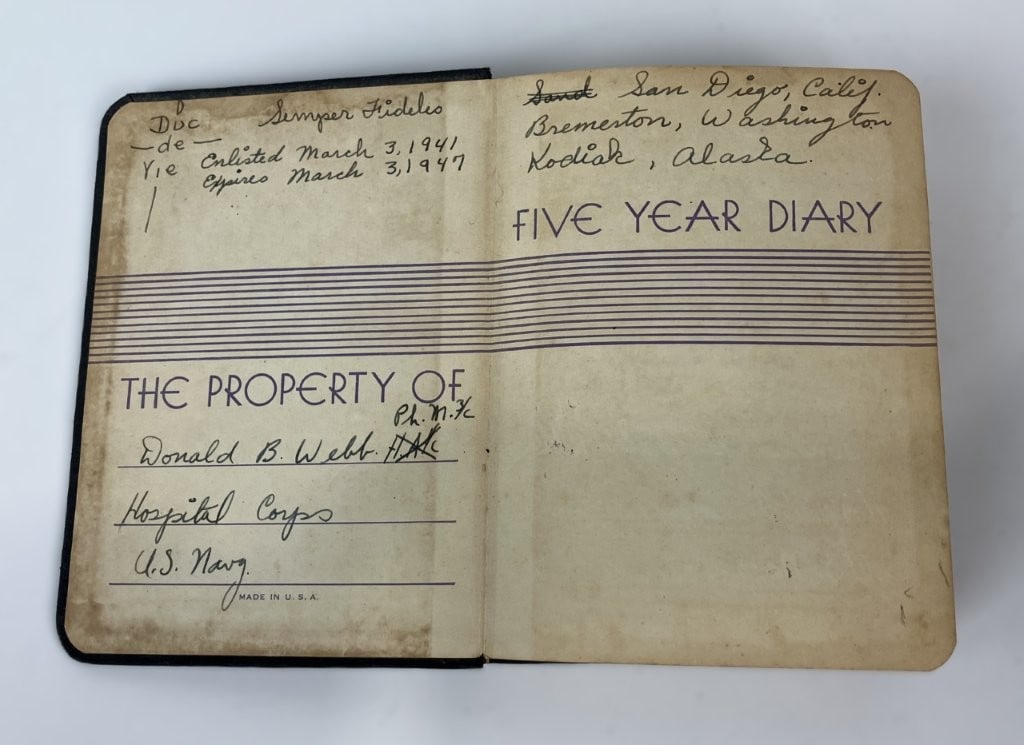 Doc Semper Fideles
- de -
Vie Enlisted March 3, 1941
Expires March 3, 1947
THE PROPERTY OF
Ph. M. 3/c
Donald B. Webb. HA1c
Hospital Corps
U.S. Navy.
MADE IN U. S. A.
Sand San Diego, Calif.
Bremerston, Washington
Kodiak, Alaska.
FIVE YEAR DIARY